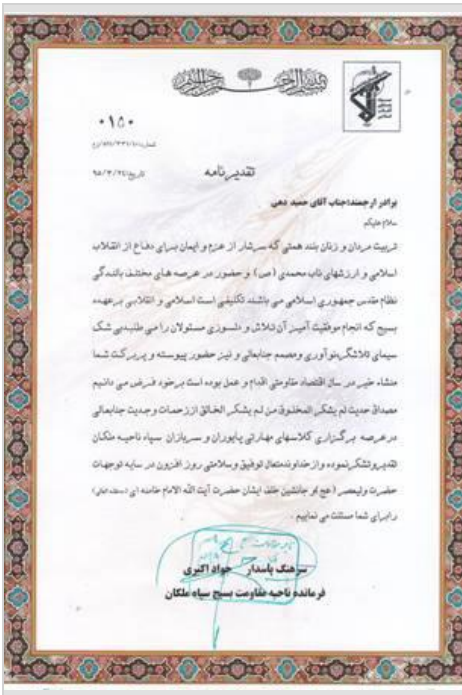 ۰۱۵۰
تقدیرنامه
برادر ارجمند:جناب آقای حمید دهن
سلام علیکم
تربیت مردان و زنان بلند همتی که سرشار از عزم و ایمان برای دفاع از انقلاب
اسلامی و ارزشهای ناب محمدی (ص) و حضور در عرصه های مختلف بالندگی
نظام مقدس جمهوری اسلامی می باشند تکلیفی است اسلامی و انقلابی برعهده
بسیج که انجام موفقیت آمیز آن تلاش و دلسوزی مسئولان را می طلبد.بی شک
سیمای تلاشگر،نوآوری ومصمم جنابعالی و نیز حضور پیوسته و پربرکت شما
منشاء خیر در سال اقتصاد مقاومتی اقدام و عمل بوده است برخود فرض می دانیم
مصداق حدیث لم یشکر المخلوق من لم یشکر الخالق اززحمات وجدیت جنابعالی
درعرصه برگزاری کلاسهای مهارتی پایوران و سربازان سپاه ناحیه ملکان
تقدیروتشکرنموده و از خداوندمتعال توفیق وسلامتی روز افزون در سایه توجهات
حضرت ولیعصر (عج) و جانشین خلف ایشان حضرت آیت الله الامام خامنه ای
رابرای شما مسئلت می نماییم .
سرهنگ پاسدار جواد اکبری
فرمانده ناحیه مقاومت بسیج سپاه ملکان